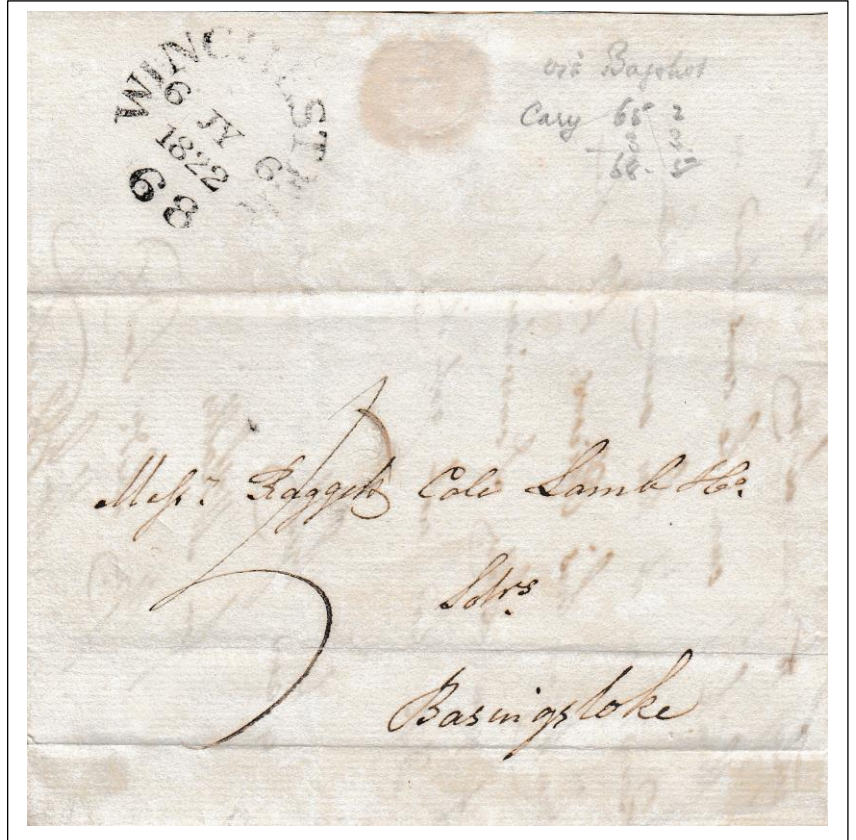 WINCHESTER
6 JY 6
1822
68
via Bagshot
Cary 65 2
3 3
68 - 5
5
Messrs. Raggett Cole Lamb & Co.
Solrs.
Basingstoke